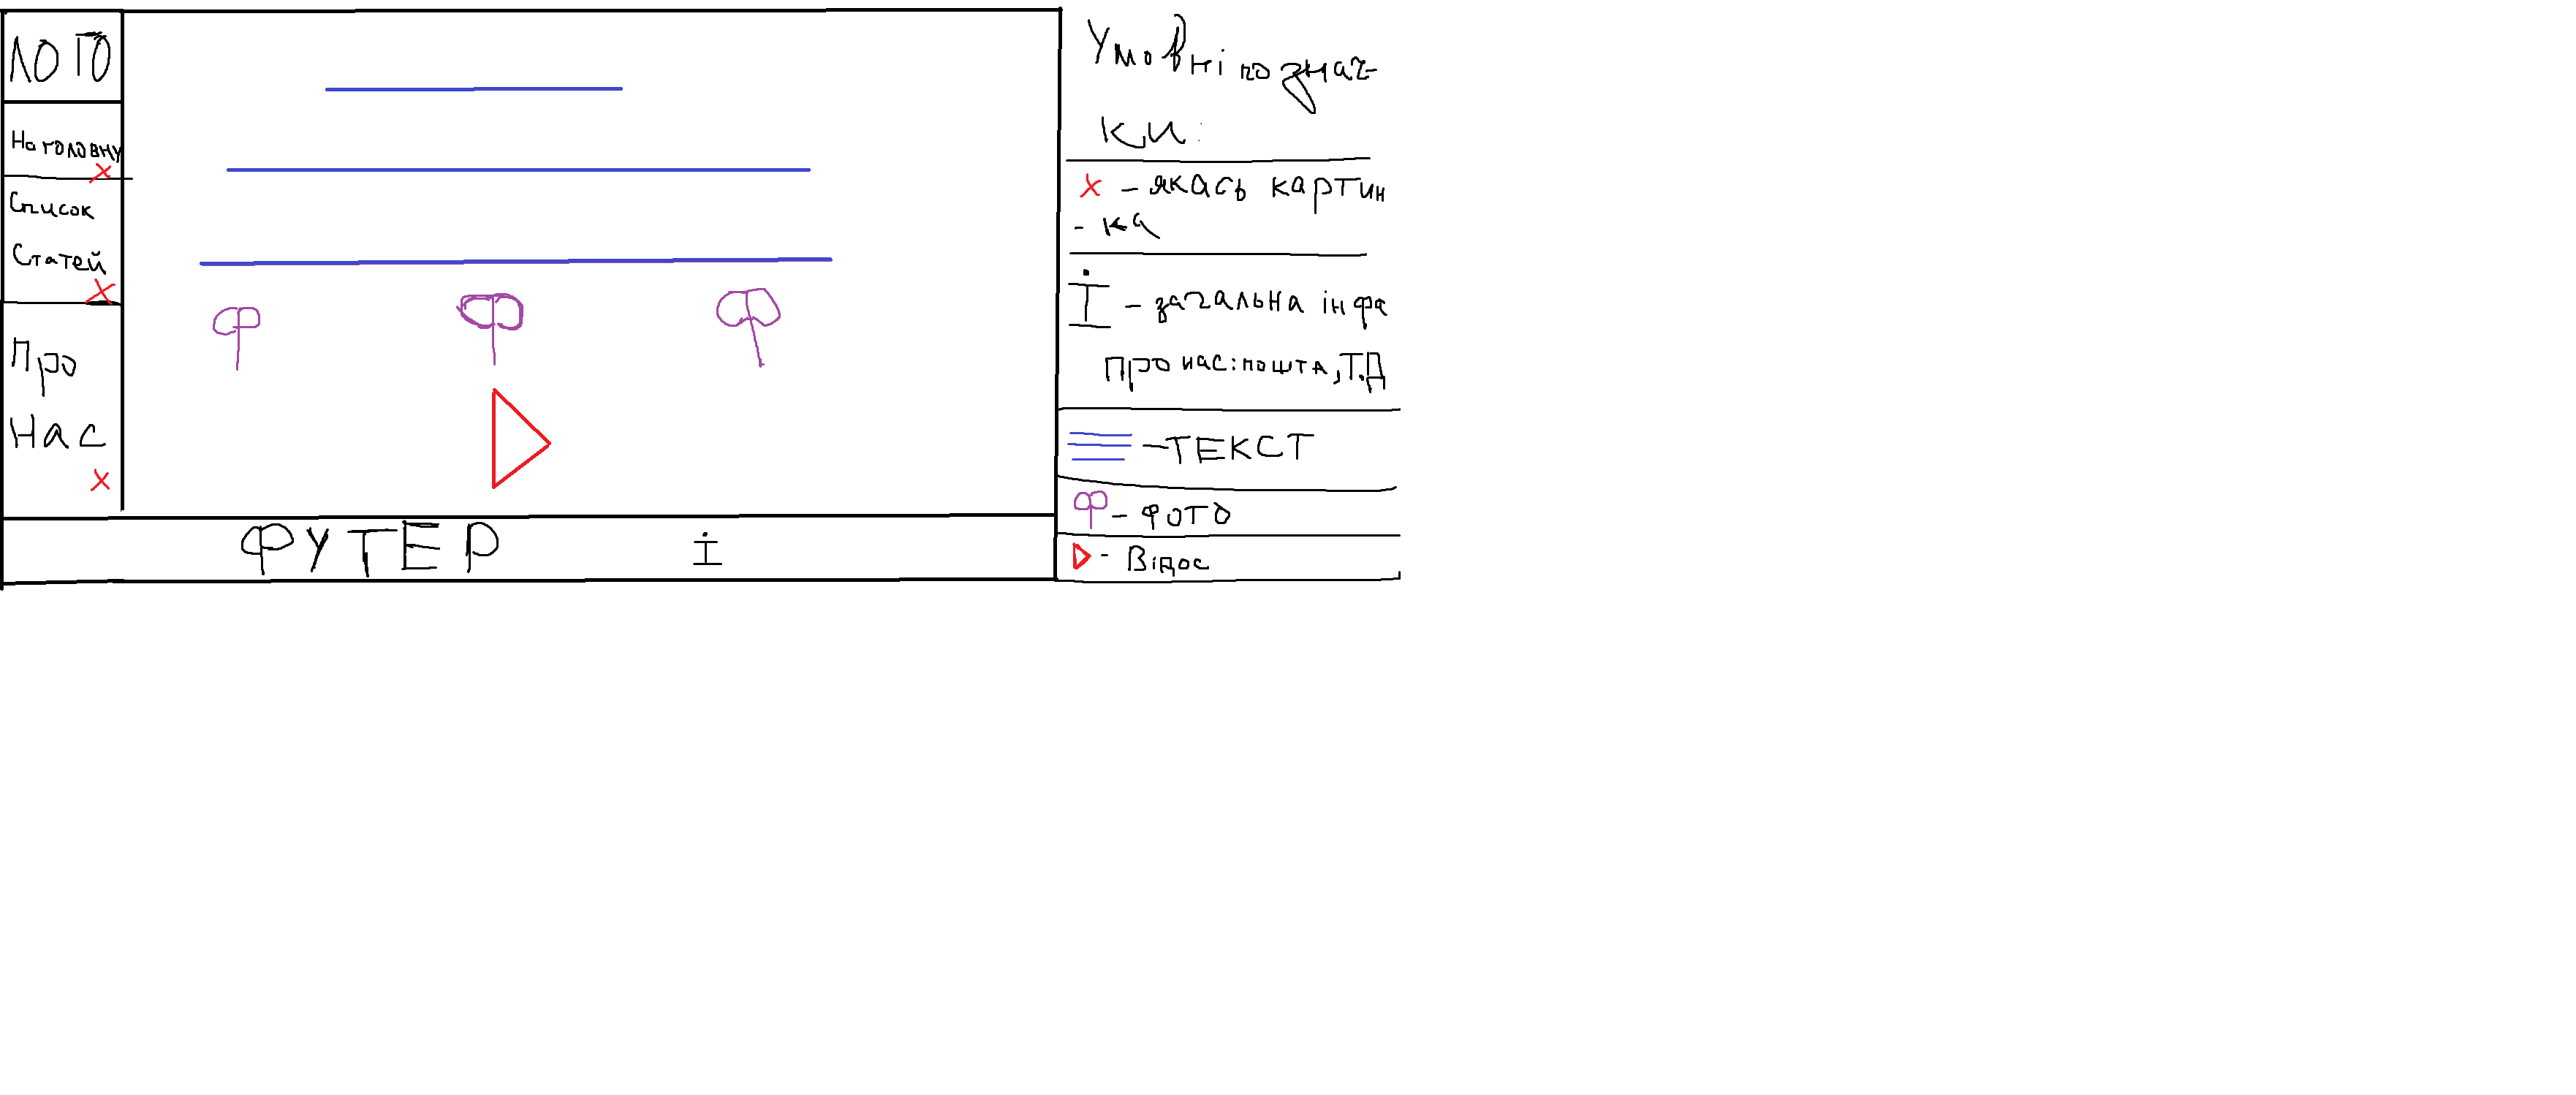 ЛОГО
На головну
х
Список
Статей
х
Про
Нас
х
Ф Ф Ф
ФУТЕР І
Умовні познач-
ки:
х - якась картин
- ка
І - загальна інфа
про нас: пошта, т.д
- ТЕКСТ
Ф - фото
- Відос